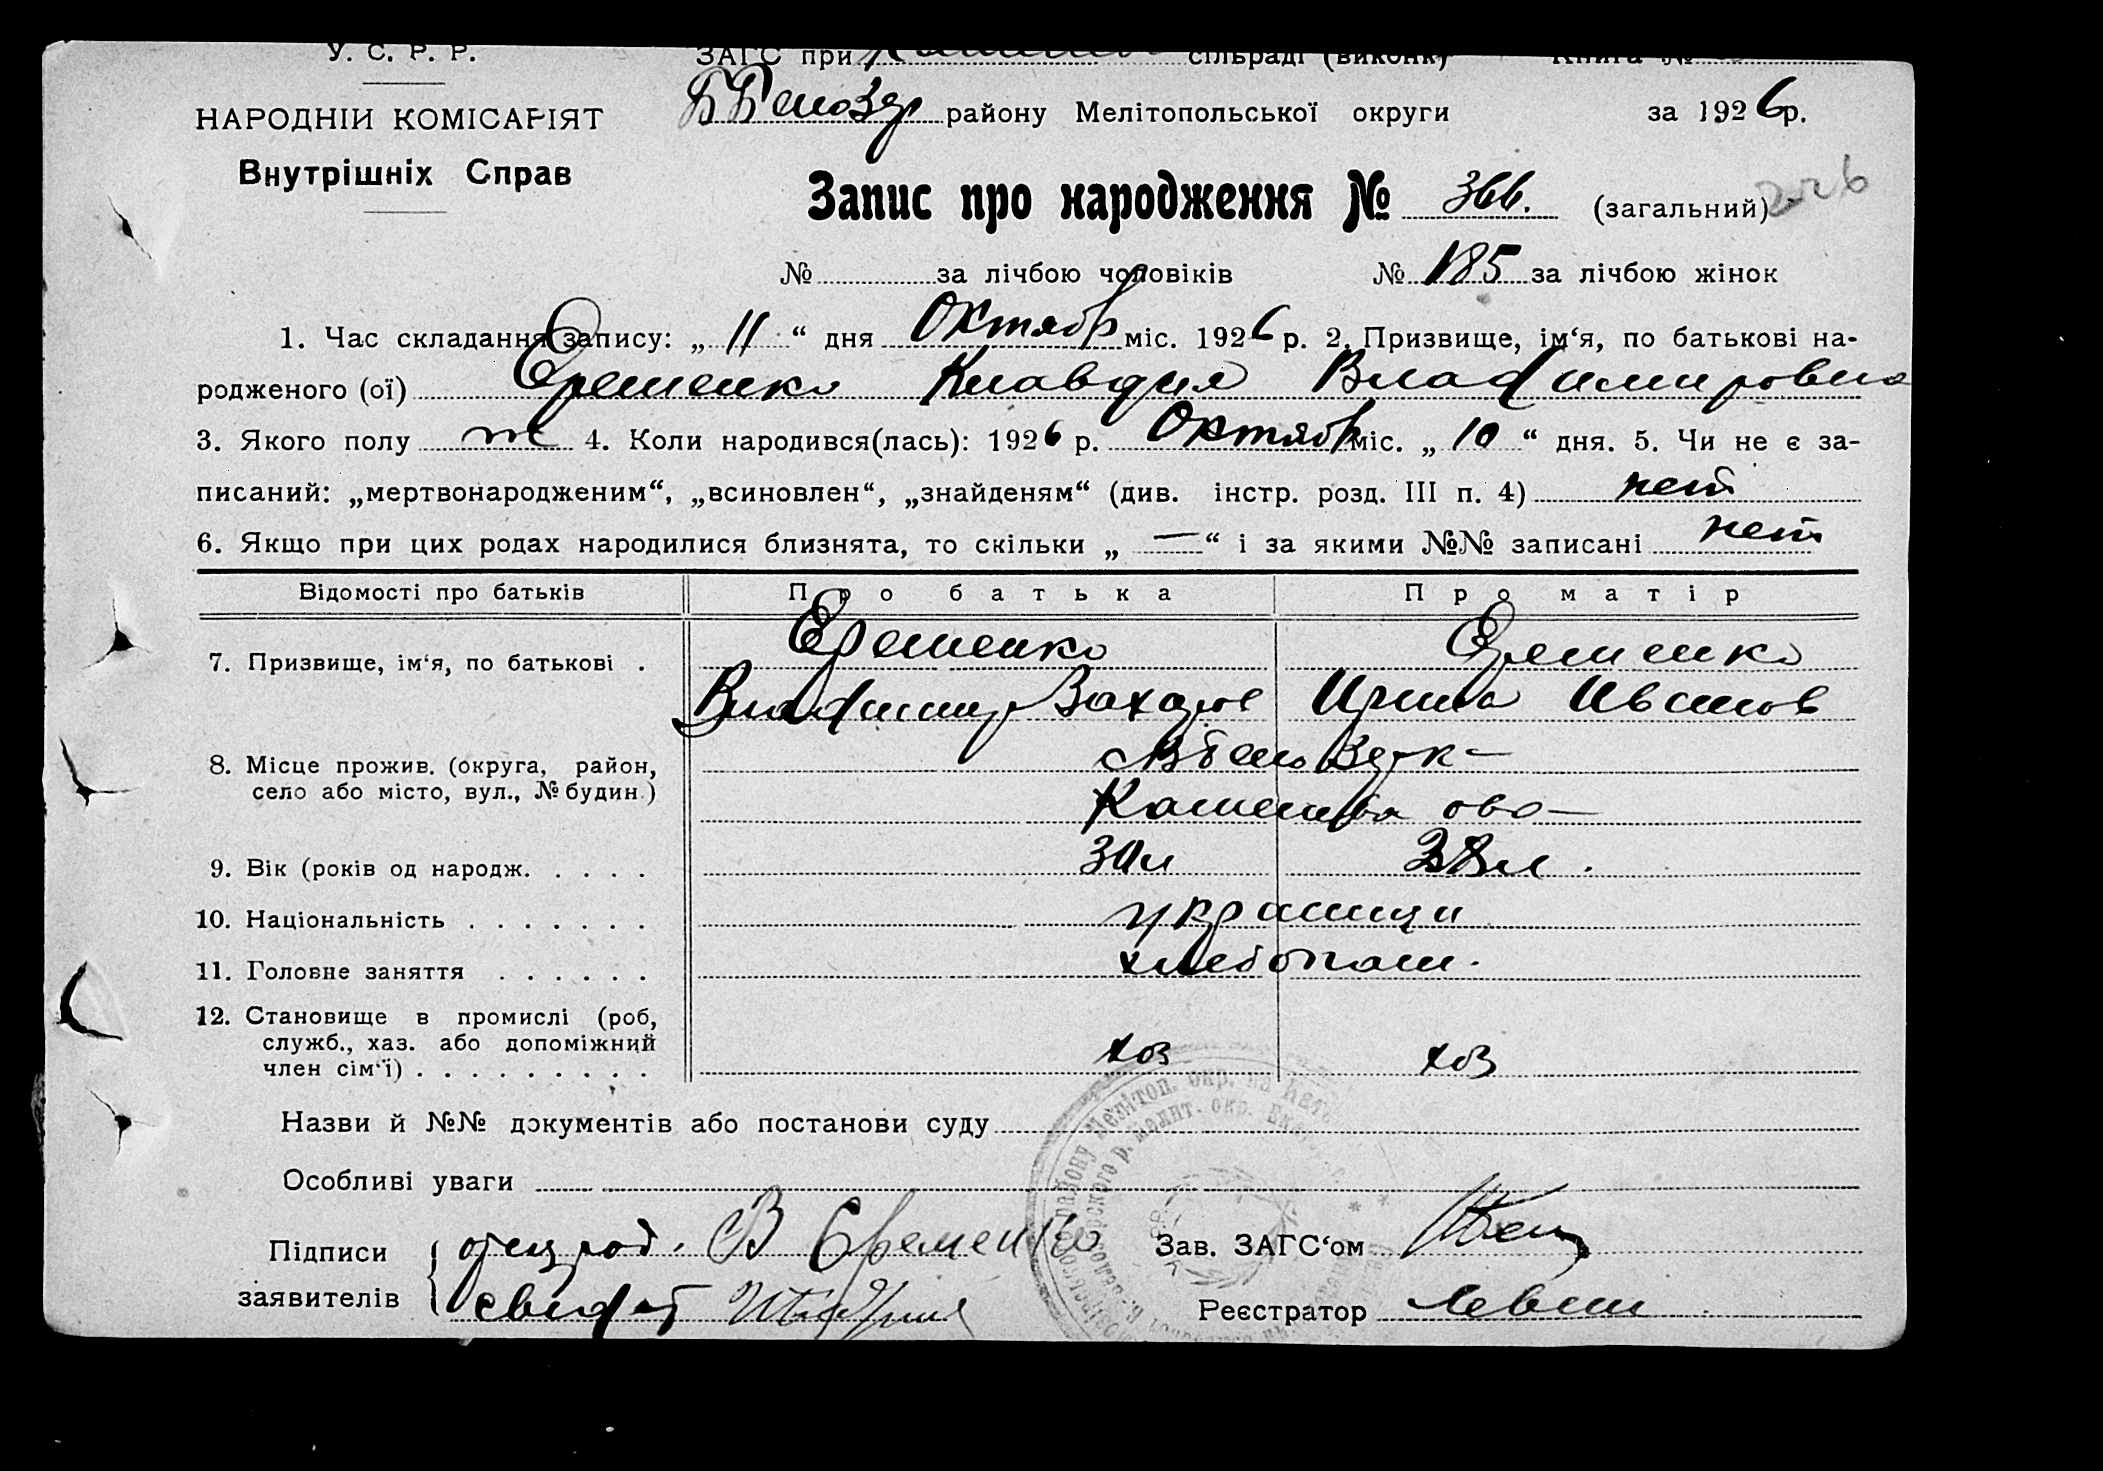 У. С. Р. Р. ЗАГС при сільраді (виконк) Книга №
Б Белозер району Мелітопольської округи за 1926 р.
НАРОДНІЙ КОМІСАРІЯТ
Внутрішніх Справ
Запис про народження № 366. (загальний) 226
№ за лічбою чоловіків № 185 за лічбою жінок
1. Час складання запису: „ 11 “ дня Октябр міс. 1926 р. 2. Призвище, ім‘я, по батькові на-
родженого (ої) Еременко Клавдия Владимировна
3. Якого полу ж 4. Коли народився(лась): 1926 р. Октябр міс. „ 10 “ дня. 5. Чи не є за-
писаний: „мертвонародженим“, „всиновлен“, „знайденям“ (див. інстр. розд. III п. 4) нет
6. Якщо при цих родах народилися близнята, то скільки „ — “ і за якими №№ записані нет
Відомості про батьків Про батька Про матір
7. Призвище, ім‘я, по батькові . Еременко Еременко
Владимир Захаров Ирина Иванов
8. Місце прожив. (округа, район,
село або місто, вул., № будин.)
9. Вік (років од народж. . . . . 30 л 28 л.
10. Національність . . . . . . . украинци
11. Головне заняття . . . . . . хлебопаш.
12. Становище в промислі (роб,
служб., хаз. або допоміжний
член сім‘ї) . . . . . . . . . хоз хоз
Назви й №№ документів або постанови суду
Особливі уваги
Підписи отец род. В Еременко Зав. ЗАГС‘ом
заявителів свидет Реєстратор